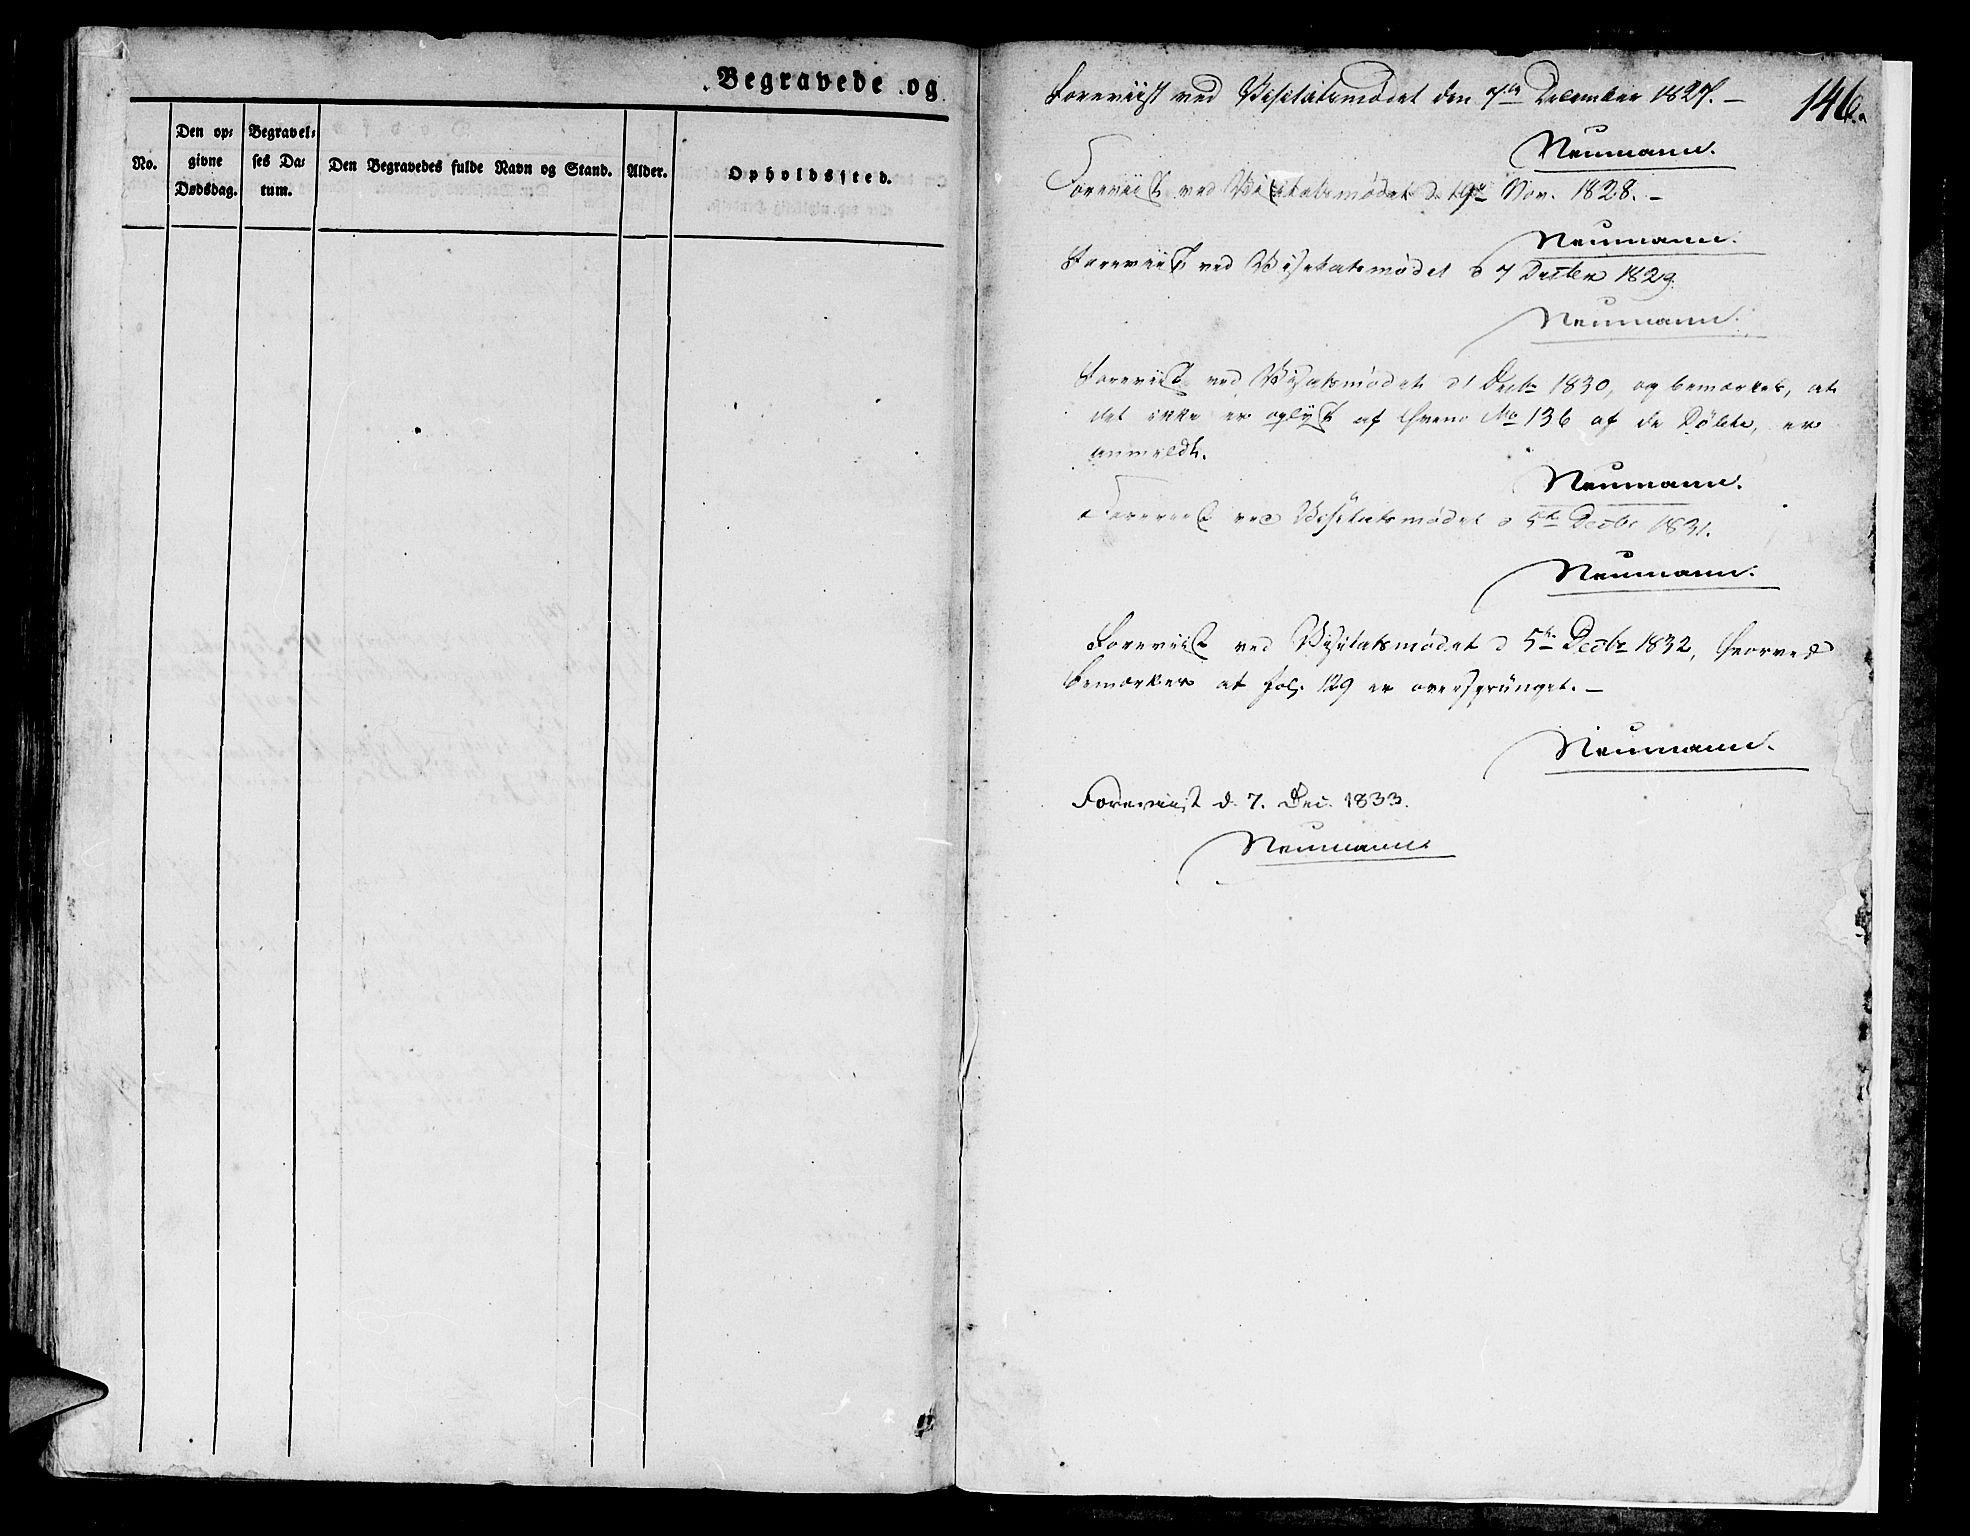 Begravede og
No.
Den op-
givne
Dødsdag.
Begravel-
ses Da-
tum.
Den Begravedes fulde Navn og Stand.
Alder.
Opholdssted.
146.
Foreviist ved Visitatsmødet den 7de December 1827. –
Neumann.
Foreviist ved Visitatsmødet d. 19de Nov. 1828. –
Neumann.
Foreviist ved Visitatsmødet d 7 Decbr 1829.
Neumann.
Foreviist ved Visatsmødet d 1 Decbr 1830, og bemærkes, at
det ikke er oplyst af hvem No 136 af de Døbte, er
anmeldt.
Neumann.
Foreviist ved Visitatsmødet d 5te Decbr 1831.
Neumann.
Foreviist ved Visitatsmødet d 5te Decbr 1832, hvorved
bemærkes at fol. 129 er oversprunget. –
Neumann.
Foreviist d. 7. Dec. 1833.
Neumann.